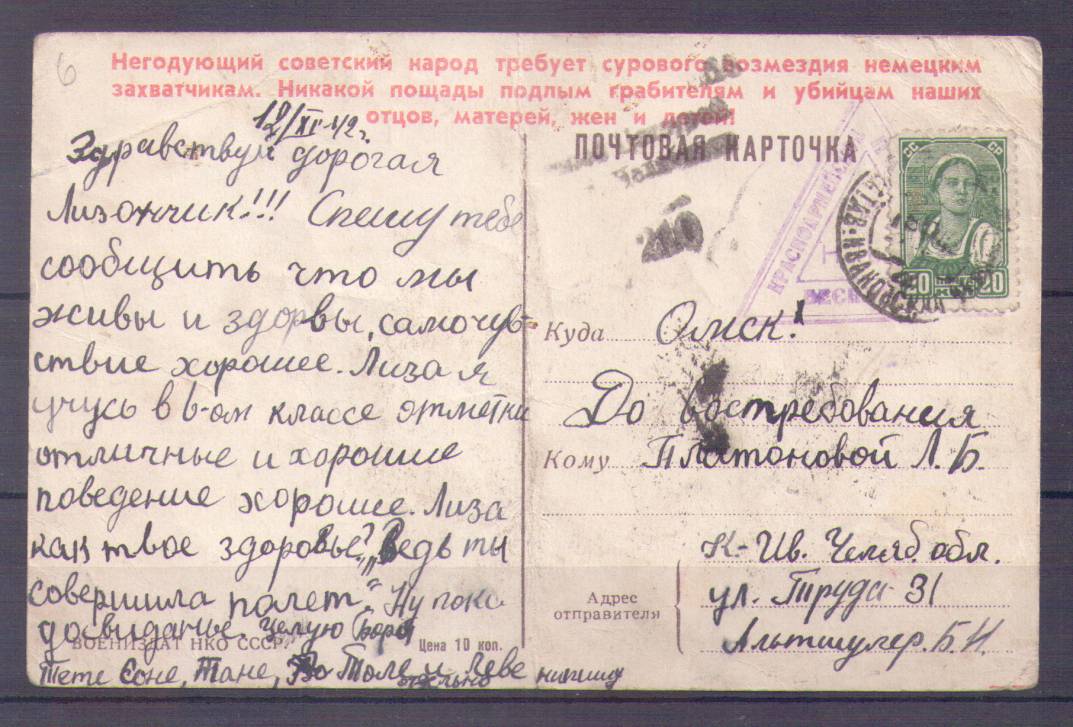 6
Негодующий советский народ требует сурового возмездия немецким
захватчикам. Никакой пощады подлым грабителям и убийцам наших
отцов, матерей, жен и детей!
18/XI-42г.
Здравствуй дорогая
Лизончик!!! Спешу тебе
сообщить что мы
живы и здоровы, самочув-
ствие хорошее. Лиза я
учусь в 6-ом классе отметки
отличные и хорошие
поведение хорошее. Лиза
как твое здоровье? „Ведь ты
совершила полет“. Ну пока
досвиданье. Целую Боря
ВОЕНИЗДАТ НКО СССР
Цена 10 коп.
Тете Соне, Тане, Толе и Леве
отдельно напишу
ПОЧТОВАЯ КАРТОЧКА
КРАСНОАРМЕЙСКАЯ
210
СС СР
20 20
Куда Омск.
До востребования
Кому Платоновой Л. Б.
Адрес
отправителя
К-Ив. Челяб. обл.
ул. Труда 31
Альтшулер. Б. И.